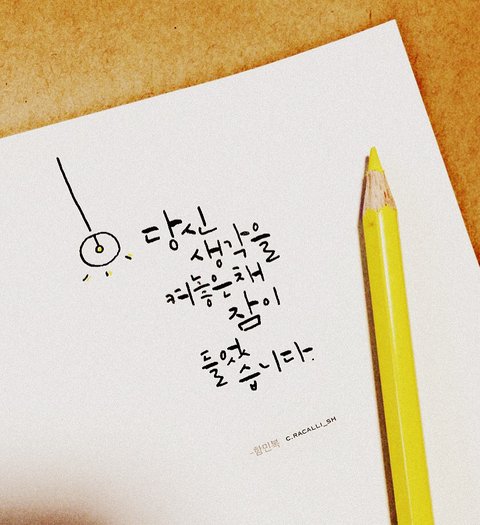 당신
생각을
켜놓은채
잠이
들었
습니다.
-함민복 C.RACALLI_SH